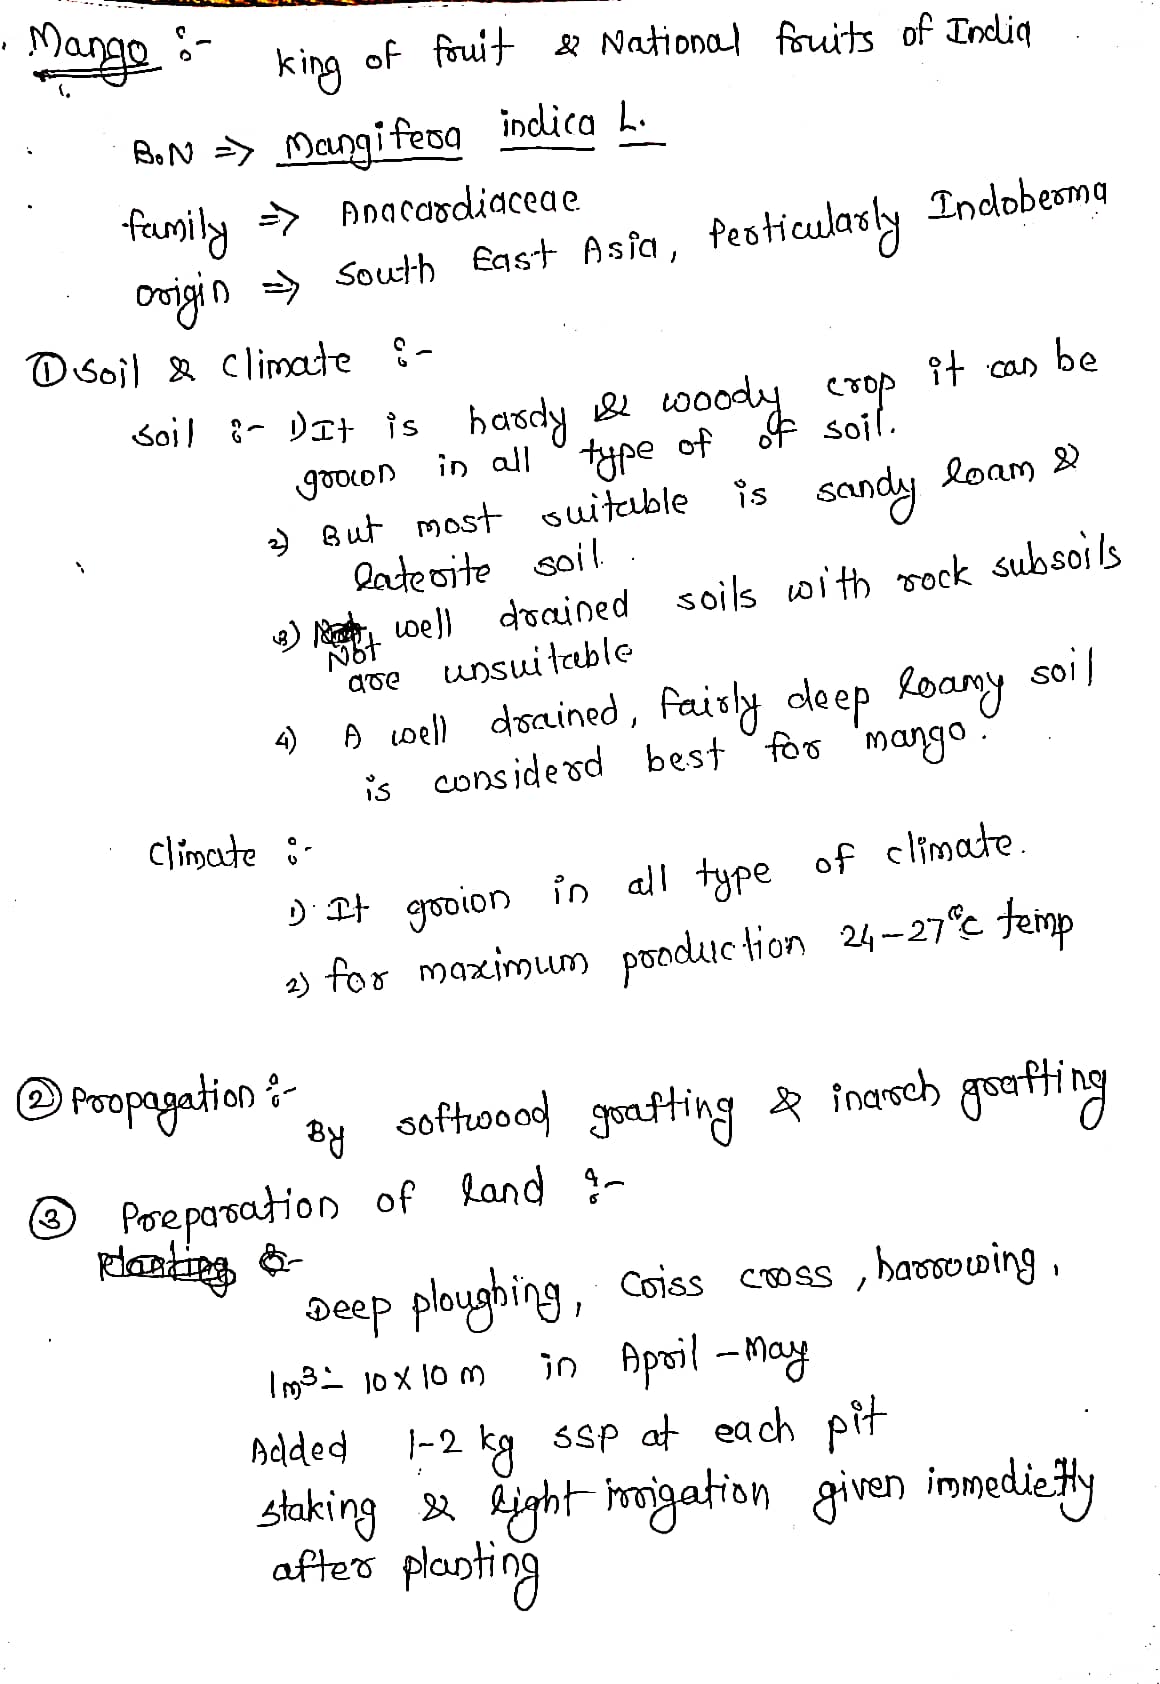 Mango :- king of fruit & National fruits of India
B.N => Mangifera indica L.
family => Anacardiaceae
origin => South East Asia, Perticularly Indoberma
① Soil & climate :-
Soil :- 1) It is hardy & woody crop it can be
grown in all type of of soil.
2) But most suitable is sandy loam &
laterite soil.
3) Not well drained soils with rock subsoils
are unsuitable
4) A well drained, fairly deep loamy soil
is considerd best for mango.
Climate :-
1) It grown in all type of climate.
2) for maximum production 24-27°c temp
② Propagation :-
By softwood grafting & inarch grafting
③ Preparation of land :-
Planting :-
Deep ploughing, Criss cross, harrowing,
1m3- 10 x 10 m in April - May
Added 1-2 kg SSP at each pit
staking & light irrigation given immedietly
after planting